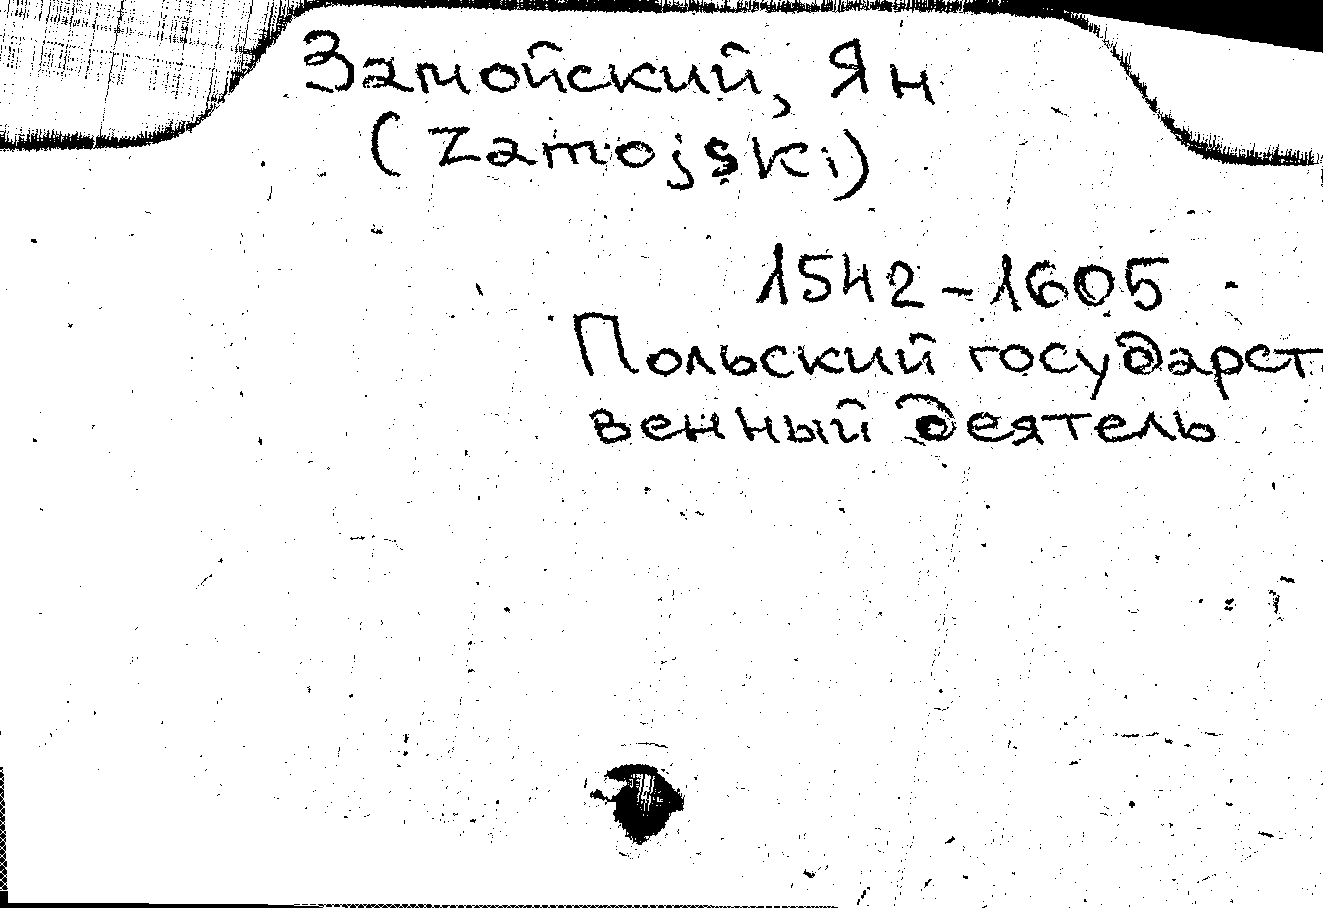 Замойский, Ян
(Zamojski)
1542-1605
Польский государст
венный деятель